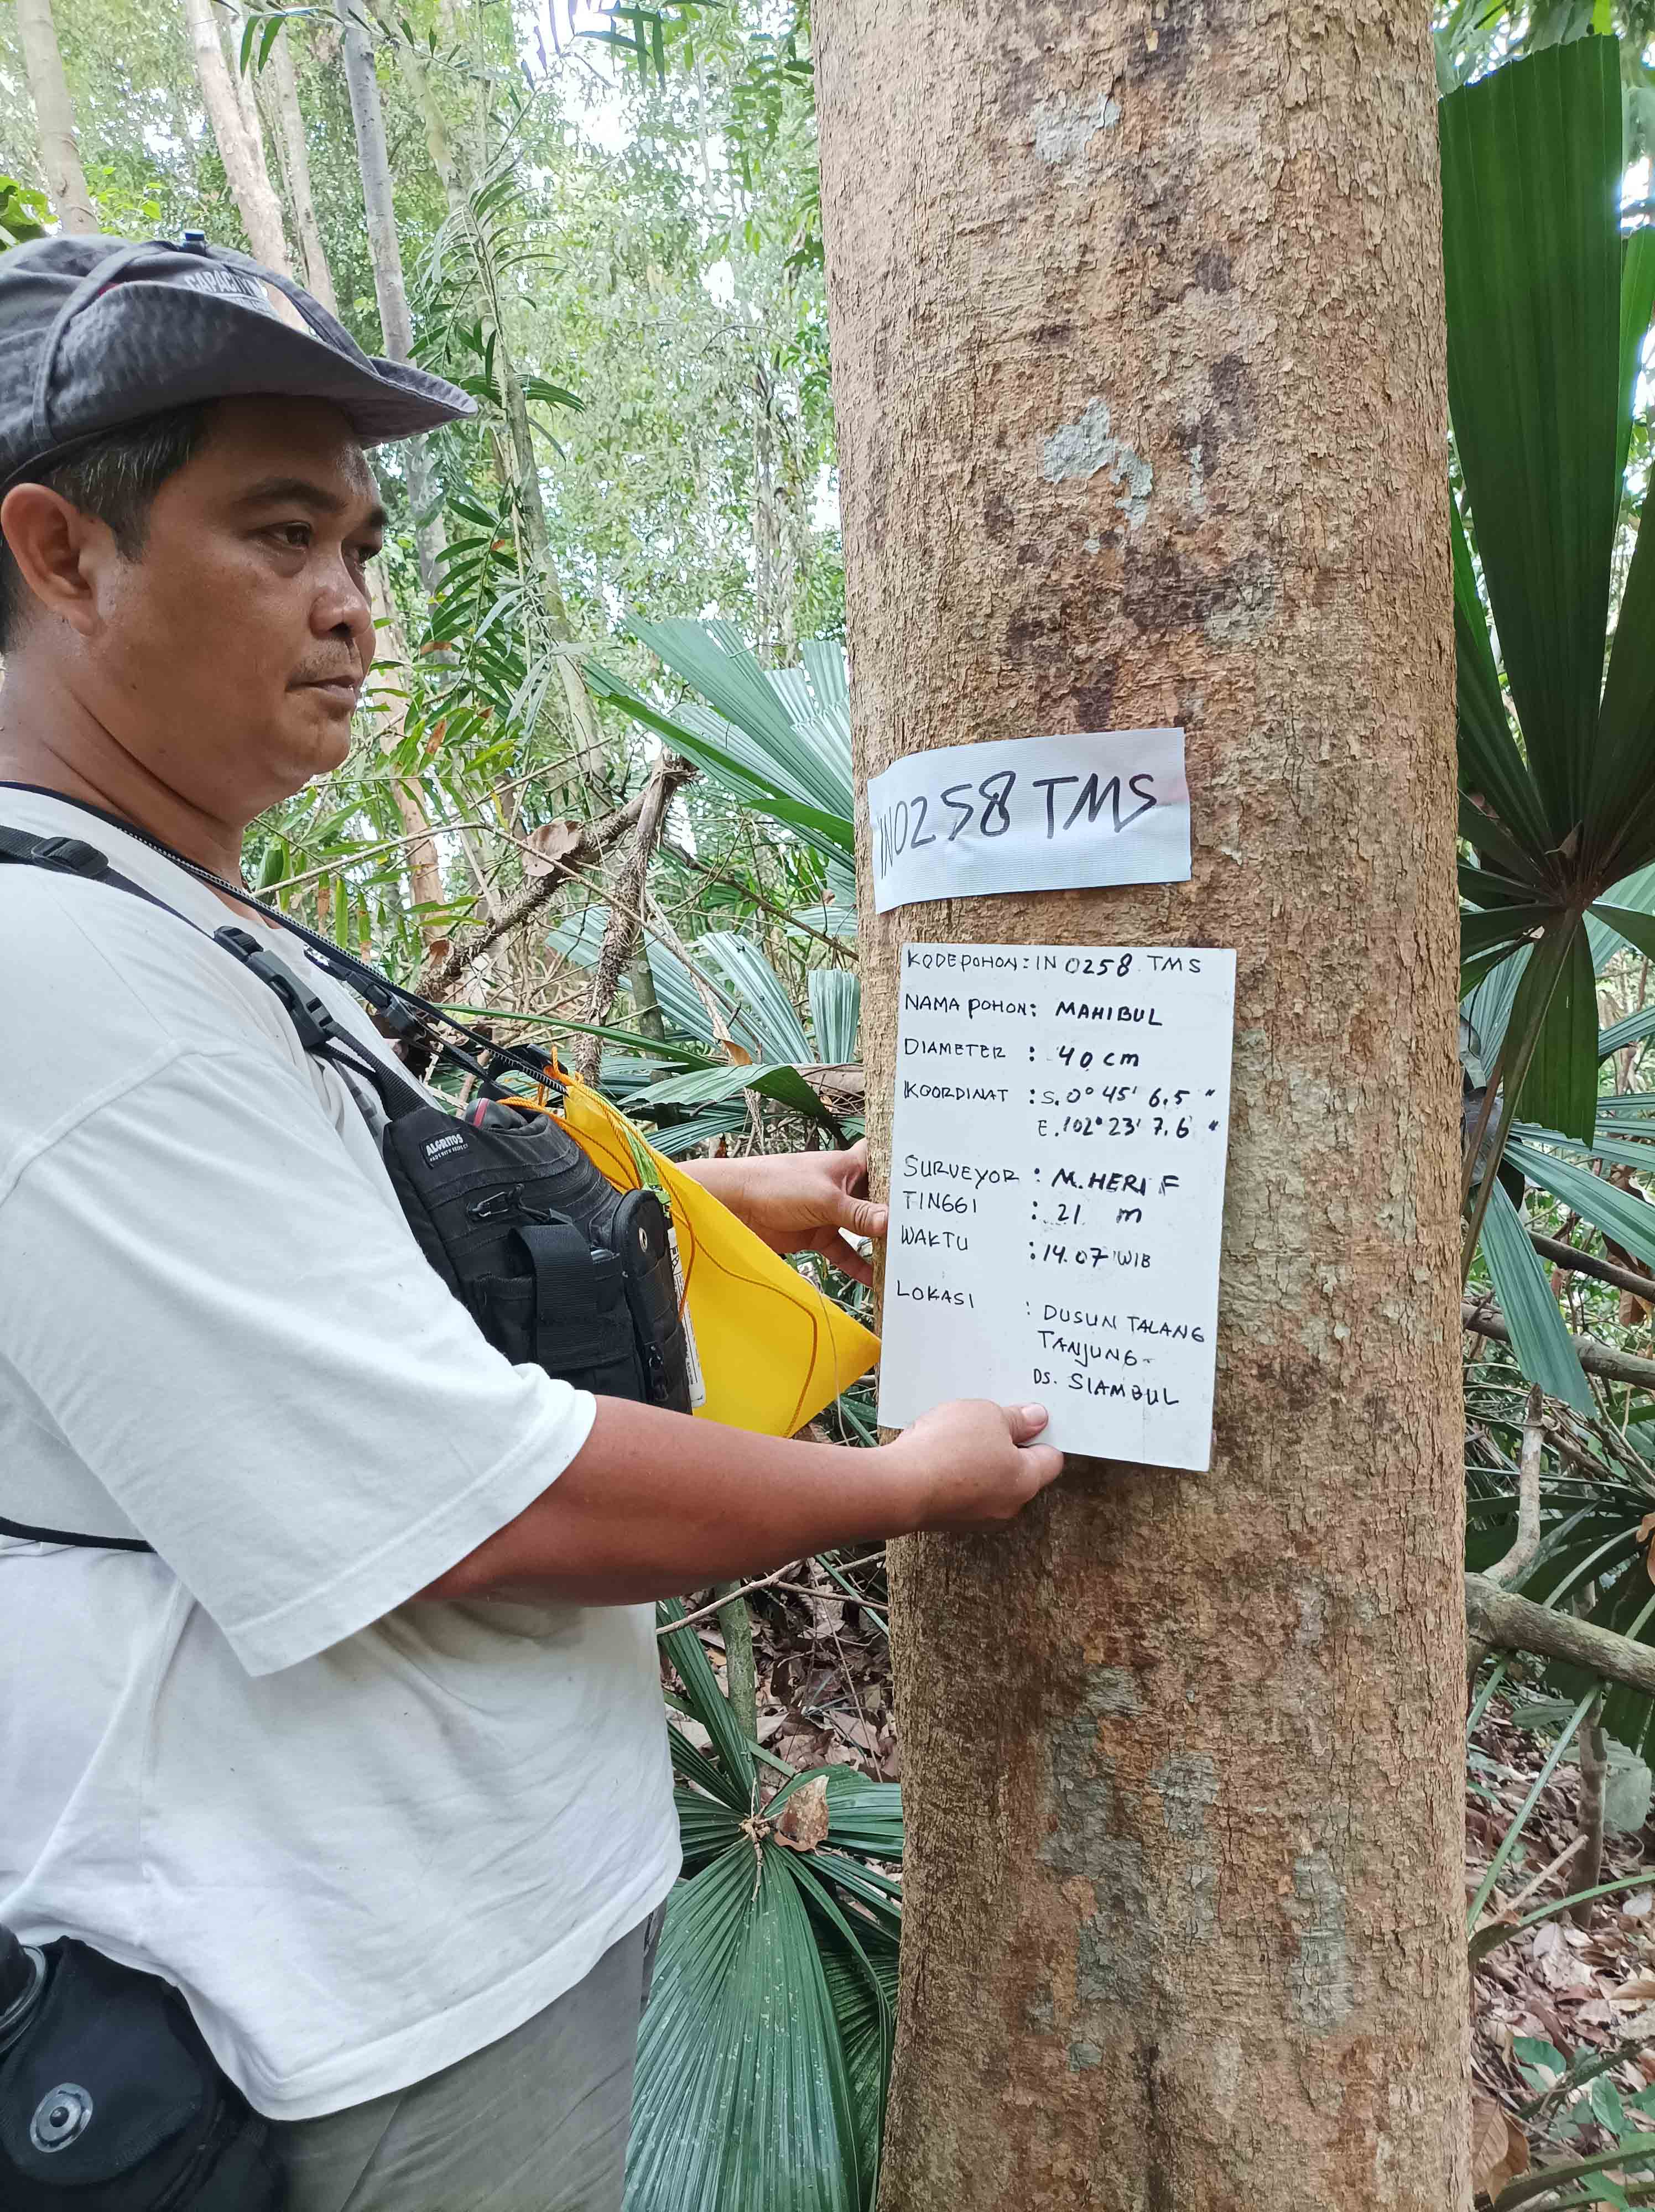 CAPACITY
IN0258 TMS
KODE POHON : IN 0258 TMS
NAMA POHON : MAHIBUL
DIAMETER : 40 cm
KOORDINAT : S. 0° 45' 6,5 "
E. 102° 23' 7,6 "
SURVEYOR : M. HERI F
TINGGI : 21 m
WAKTU : 14.07 WIB
LOKASI : DUSUN TALANG
TANJUNG-
DS. SIAMBUL
ALGRITOS